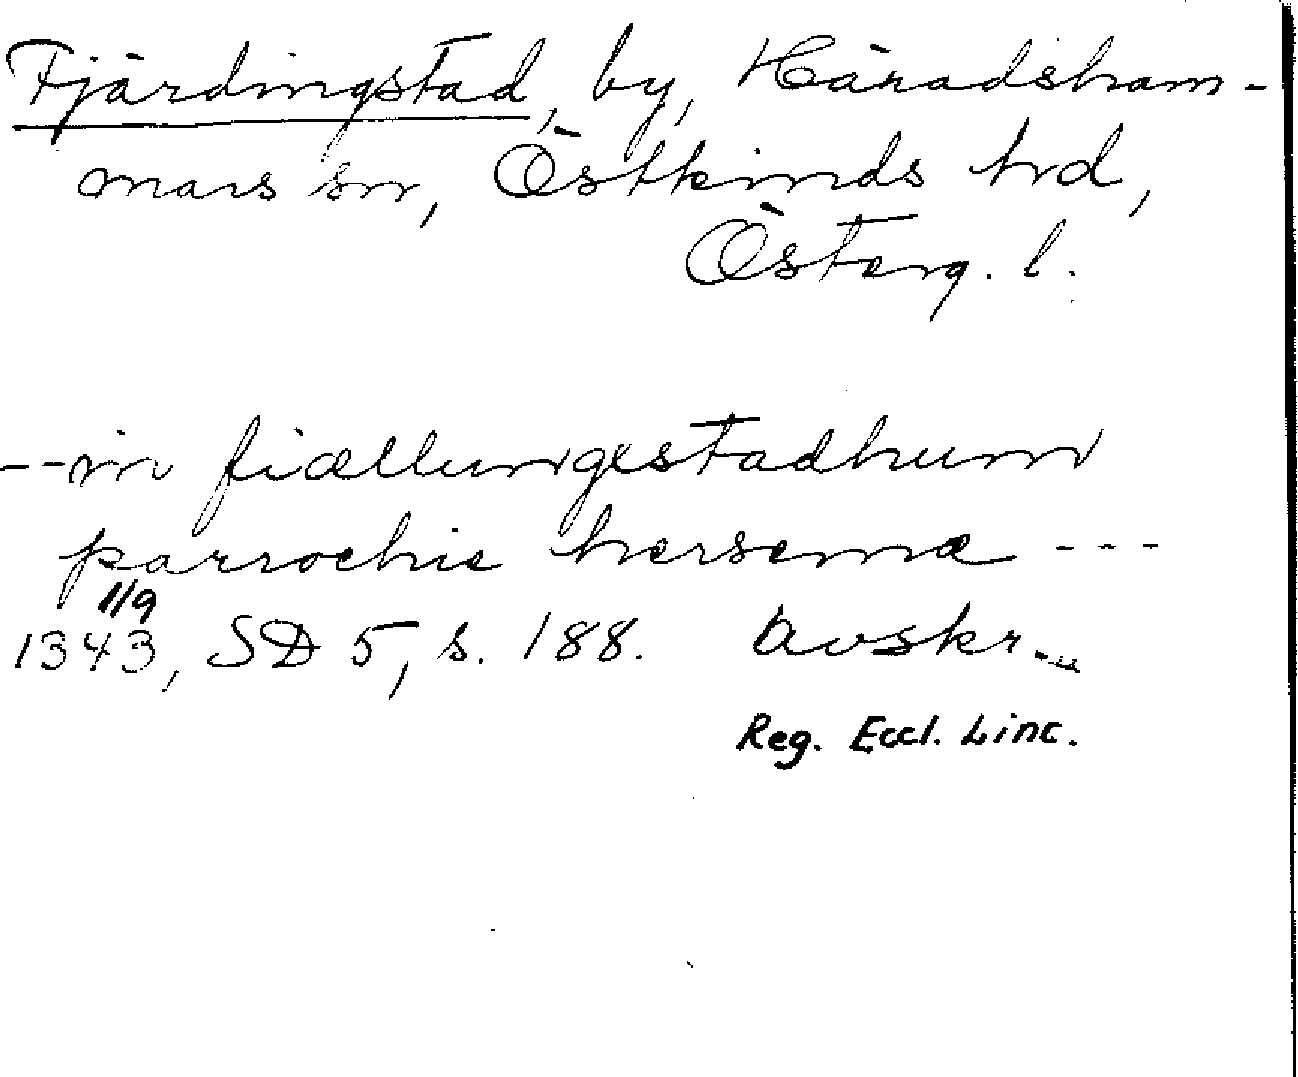 Fjärdingstad, by, Häradsham-
mars sn, Östkinds hd,
Österg. l.
--in fiællungestadhum
parrochie hersema ---
1/9
1343, SD 5, s. 188. Avskr.
Reg. Eccl. Linc.